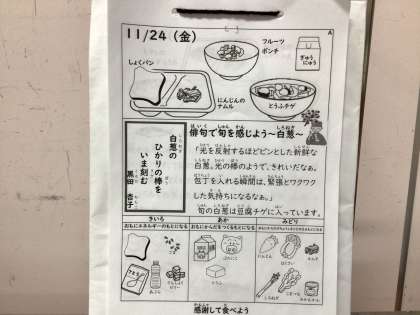 11/24（金）
A
フルーツ
ポンチ
ぎゅう
にゅう
しょくパン
にんじんの
ナムル
とうふチゲ
俳句で旬を感じよう～白葱～
白葱の
ひかりの棒を
いま刻む
黒田 杏子
「光を反射するほどピンとした新鮮な
白葱。光の棒のようで、きれいだなぁ。
包丁を入れる瞬間は、緊張とワクワク
した気持ちになるなぁ。」
旬の白葱は豆腐チゲに入っています。
きいろ
あか
みどり
おもにエネルギーのもとになる
おもにからだをつくるもとになる
さとう
あぶら
ぶたにく
とうふ
にんじん
はくさい
感謝して食べよう